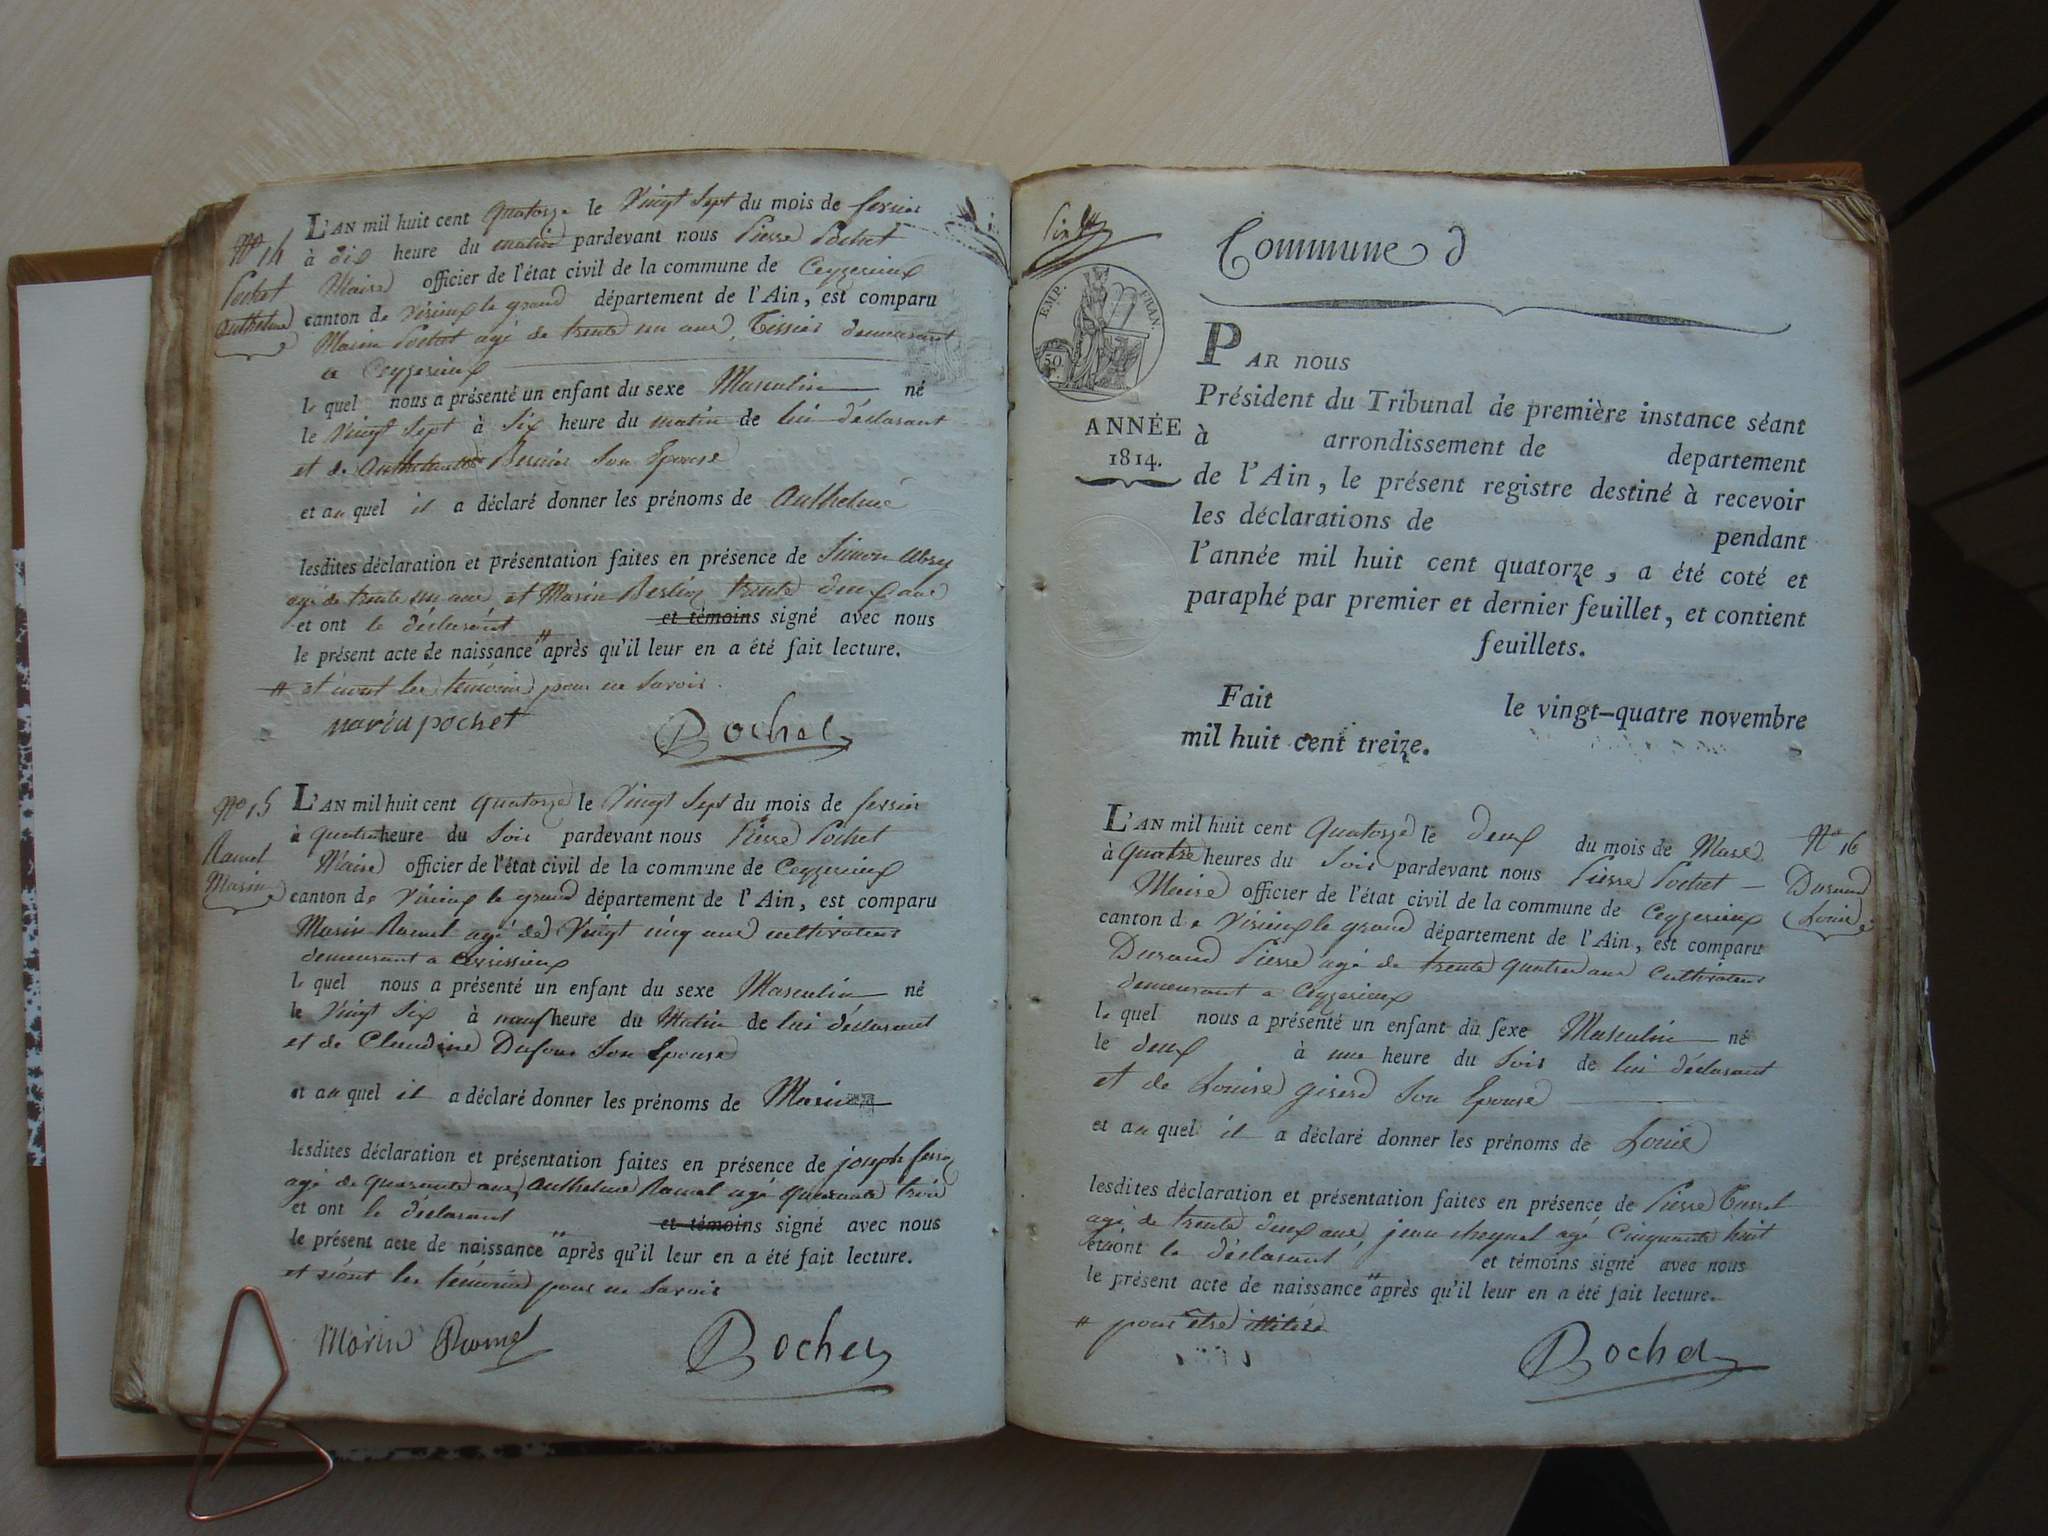 N° 14
Pochet
Anthelme
L'AN mil huit cent quatorze le Vingt Sept du mois de fevrier
à dix heure du matin pardevant nous Pierre Pochet
Maire officier de l'état civil de la commune de Ceyzerieux
canton de Virieux le grand département de l'Ain, est comparu
Marin Pochet agé de trente un ans, Tissier demeurant
a Ceyzerieux
le quel nous a présenté un enfant du sexe Masculin né
le Vingt Sept à Six heure du matin de lui déclarant
et de Bernier Son Epouse
et au quel il a déclaré donner les prénoms de Anthelme
lesdites déclaration et présentation faites en présence de Simon
agé de trente un ans et Marin Berlioz trente deux ans
et ont le déclarant et témoins signé avec nous
le présent acte de naissance # après qu'il leur en a été fait lecture.
# et n'ont les témoins pour ne Savoir.
marin pochet Pochet
N° 15
Ramel
Marin
L'AN mil huit cent quatorze le Vingt Sept du mois de fevrier
à quatre heure du Soir pardevant nous Pierre Pochet
Maire officier de l'état civil de la commune de Ceyzerieux
canton de Virieux le grand département de l'Ain, est comparu
Marin Ramel agé de Vingt cinq ans cultivateur
demeurant a
le quel nous a présenté un enfant du sexe Masculin né
le Vingt Six à neuf heure du Matin de lui déclarant
et de Claudine Dufour Son Epouse
et au quel il a déclaré donner les prénoms de Marin
lesdites déclaration et présentation faites en présence de joseph
agé de quarante ans, Anthelme Ramel agé quarante trois
et ont le déclarant et témoins signé avec nous
le présent acte de naissance " après qu'il leur en a été fait lecture.
et n'ont les témoins pour ne Savoir
Marin Ramel Pochet
Commune d
EMP. FRAN.
50
ANNÉE
1814.
PAR nous
Président du Tribunal de première instance séant
à arrondissement de departement
de l'Ain, le présent registre destiné à recevoir
les déclarations de pendant
l'année mil huit cent quatorze, a été coté et
paraphé par premier et dernier feuillet, et contient
feuillets.
Fait le vingt-quatre novembre
mil huit cent treize.
N° 16
Durand
Louis
L'AN mil huit cent quatorze le deux du mois de Mars
à quatre heures du Soir pardevant nous Pierre Pochet
Maire officier de l'état civil de la commune de Ceyzerieux
canton de Virieux le grand département de l'Ain, est comparu
Durand Pierre agé de trente quatre ans Cultivateur
demeurant a Ceyzerieux
le quel nous a présenté un enfant du sexe Masculin né
le deux à une heure du Soir de lui déclarant
et de Louise girerd Son Epouse
et au quel il a déclaré donner les prénoms de Louis
lesdites déclaration et présentation faites en présence de Pierre
agé de trente deux ans, jean agé Cinquante huit
et n'ont le déclarant et témoins signé avec nous
le présent acte de naissance # après qu'il leur en a été fait lecture.
# pour être
Pochet